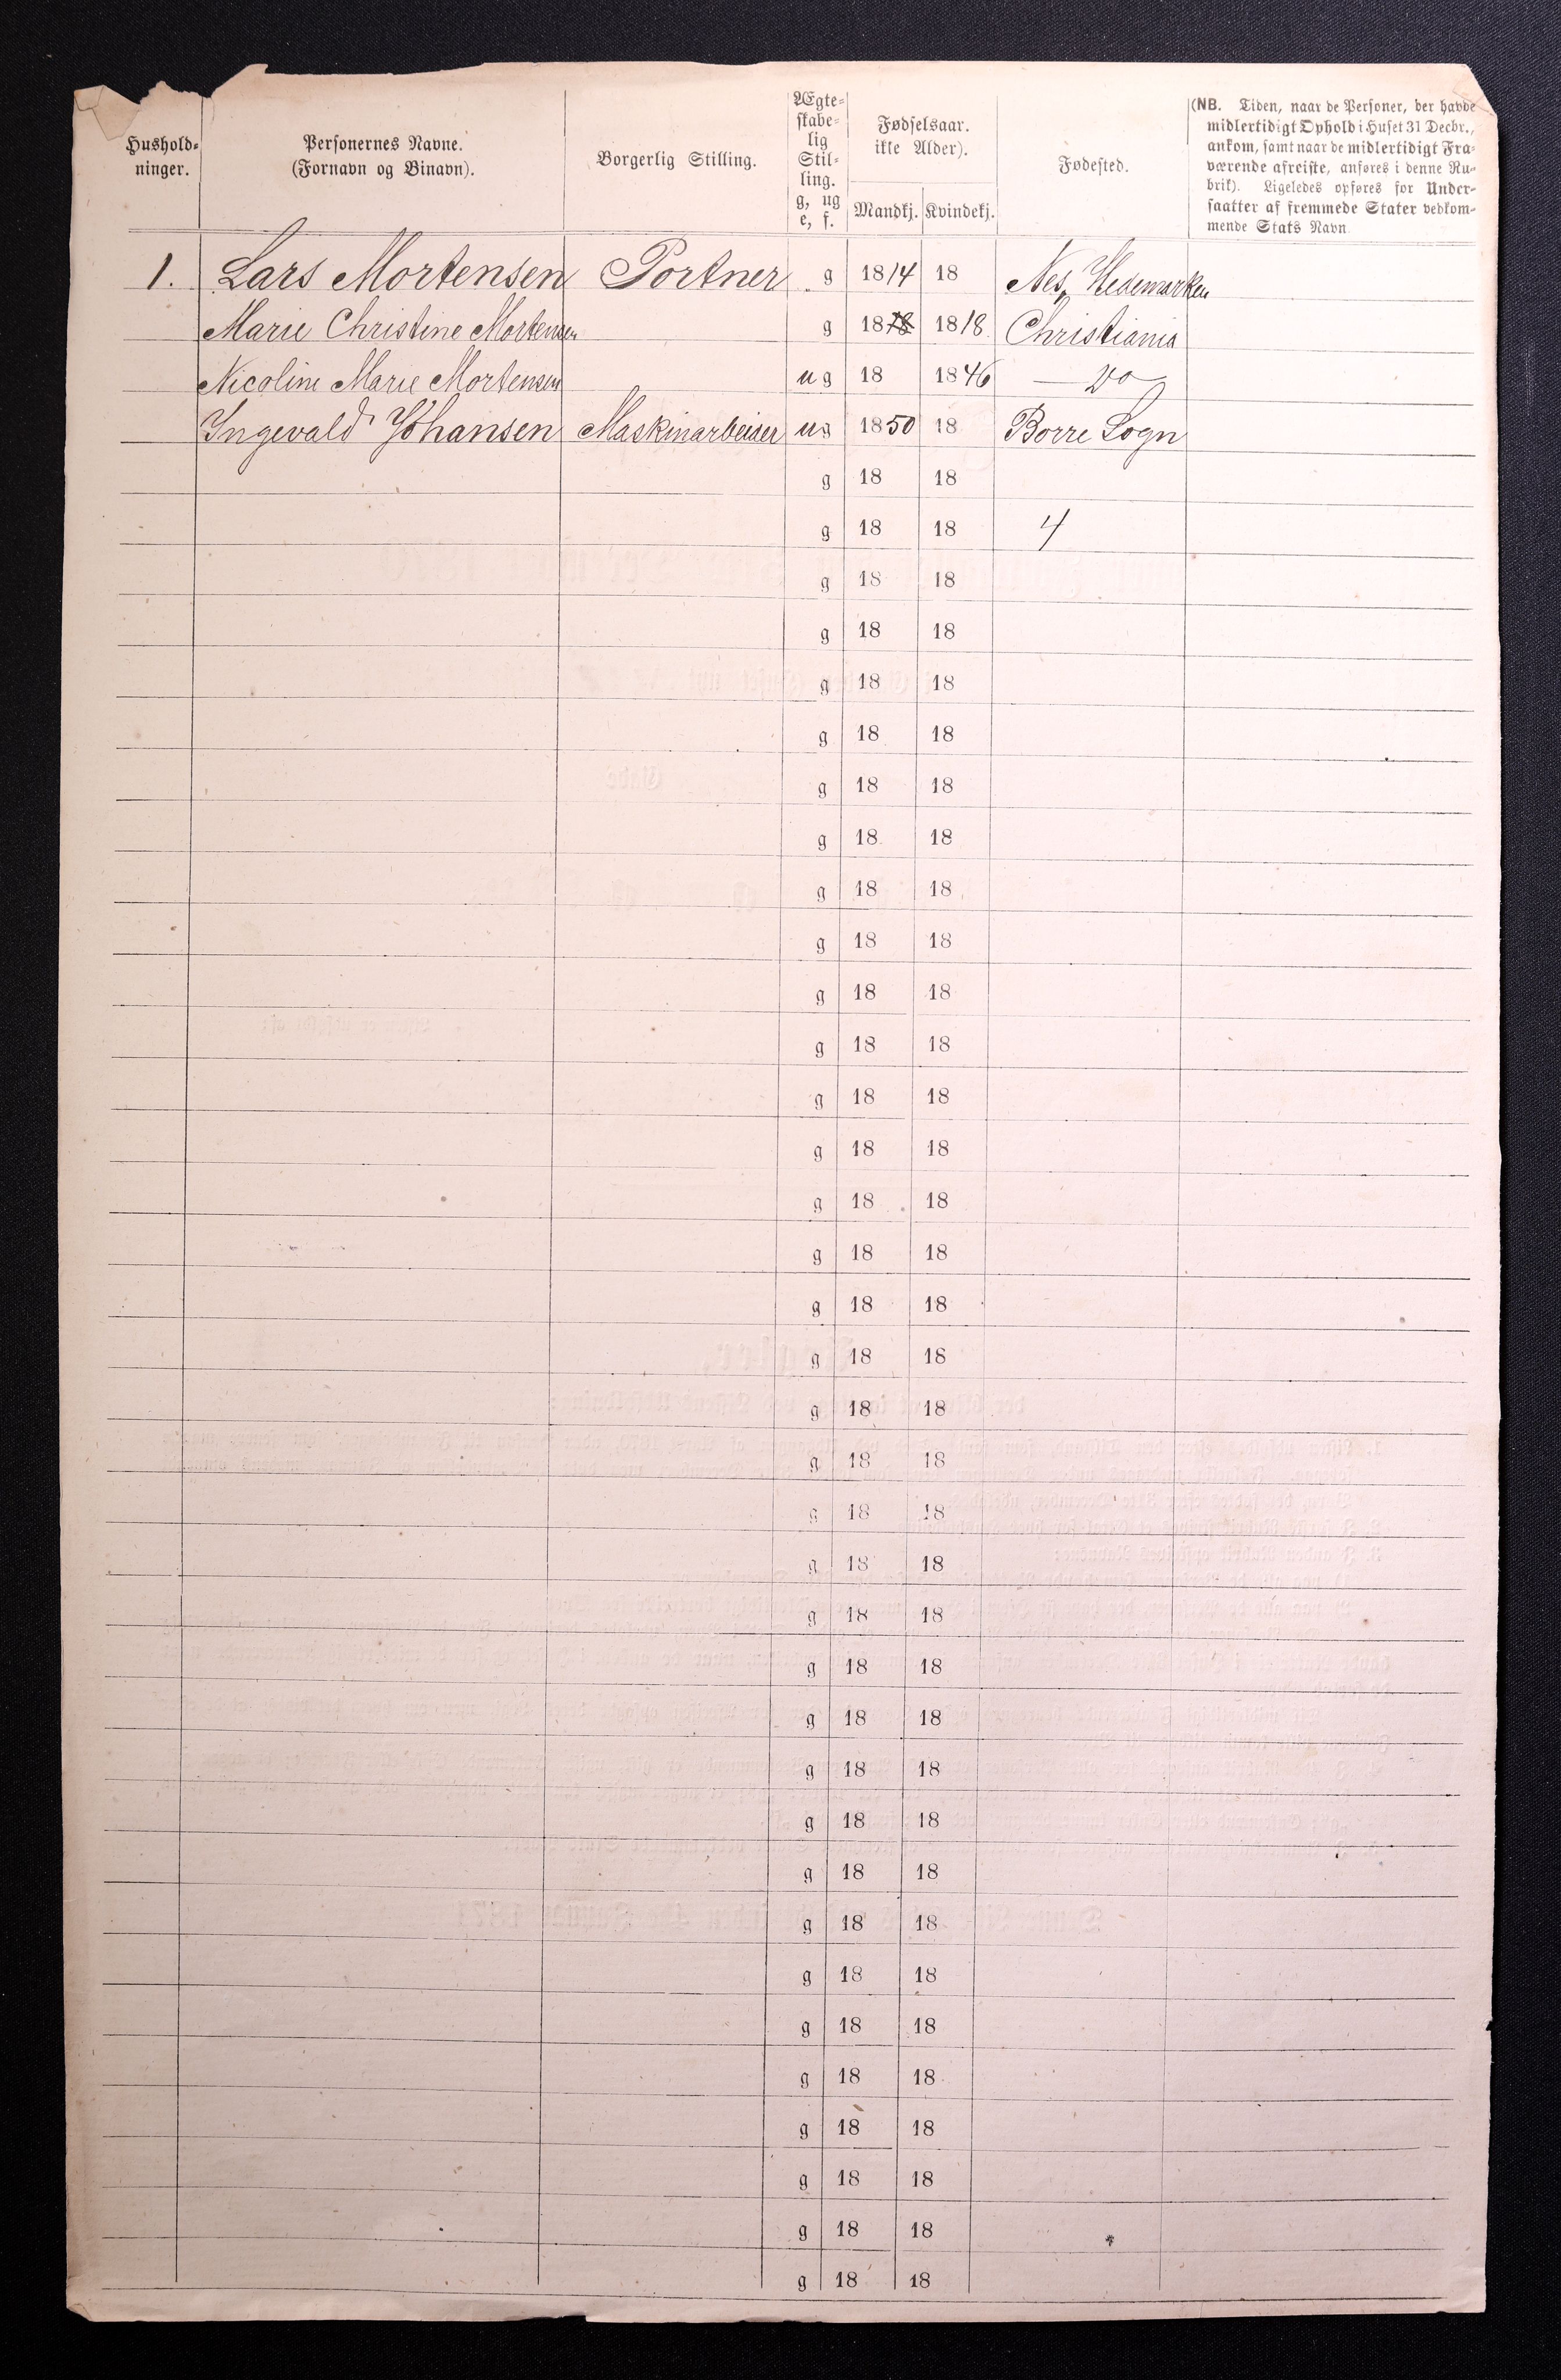 Hushold-
ninger.
Personernes Navne.
(Fornavn og Binavn).
Borgerlig Stilling.
Ægte-
skabe-
lig
Stil-
ling.
g, ug
e, f.
Fødselsaar.
ikke Alder).
Mandkj. Kvindekj.
Fødested.
(NB. Tiden, naar de Personer, der havde
midlertidigt Ophold i Huset 31 Decbr.,
ankom, samt naar de midlertidigt Fra-
værende afreiste, anføres i denne Ru-
brik). Ligeledes opføres for Under-
saatter af fremmede Stater vedkom-
mende Stats Navn
1. Lars Mortensen Portner g 1814 18 Nes, Hedemarken
Marie Christine Mortensen g 1818 1818 Christiania
Nicoline Marie Mortensen ug 18 1846 — Do —
Ingevald Johansen Maskinarbeider ug 1850 18 Borre Sogn
g 18 18
g 18 18 4
g 18 18
g 18 18
g 18 18
g 18 18
g 18 18
g 18 18
g 18 18
g 18 18
g 18 18
g 18 18
g 18 18
g 18 18
g 18 18
g 18 18
g 18 18
g 18 18
g 18 18
g 18 18
g 18 18
g 18 18
g 18 18
g 18 18
g 18 18
g 18 18
g 18 18
g 18 18
g 18 18
g 18 18
g 18 18
g 18 18
g 18 18
g 18 18
g 18 18
g 18 18